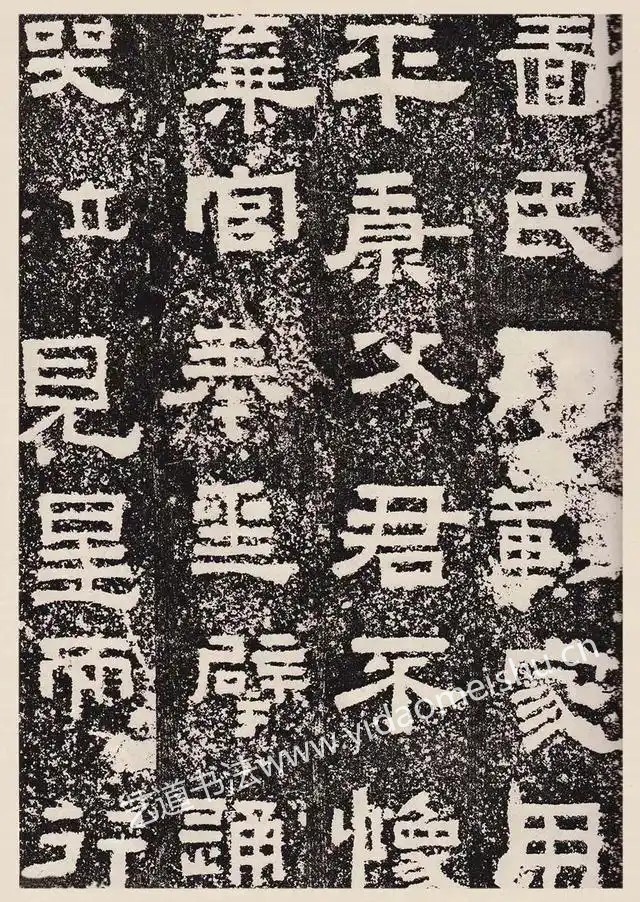 民歡家用
平康父君不㦾
棄官奉擘誦
哭泣見星而行
艺道书法www.yidaomeishu.cn